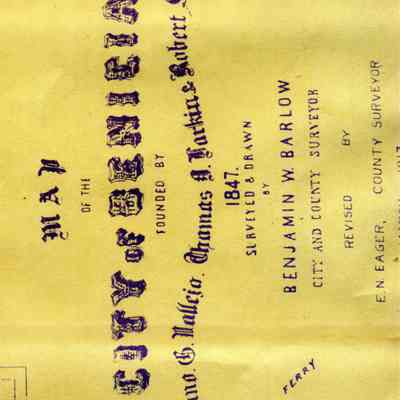 MAP
OF THE
CITY OF BENICIA
FOUNDED BY
G. Vallejo. Thomas O. Larkin & Robert
1847.
SURVEYED & DRAWN
BY
BENJAMIN W. BARLOW
CITY AND COUNTY SURVEYOR
REVISED
BY
E.N. EAGER, COUNTY SURVEYOR
FERRY